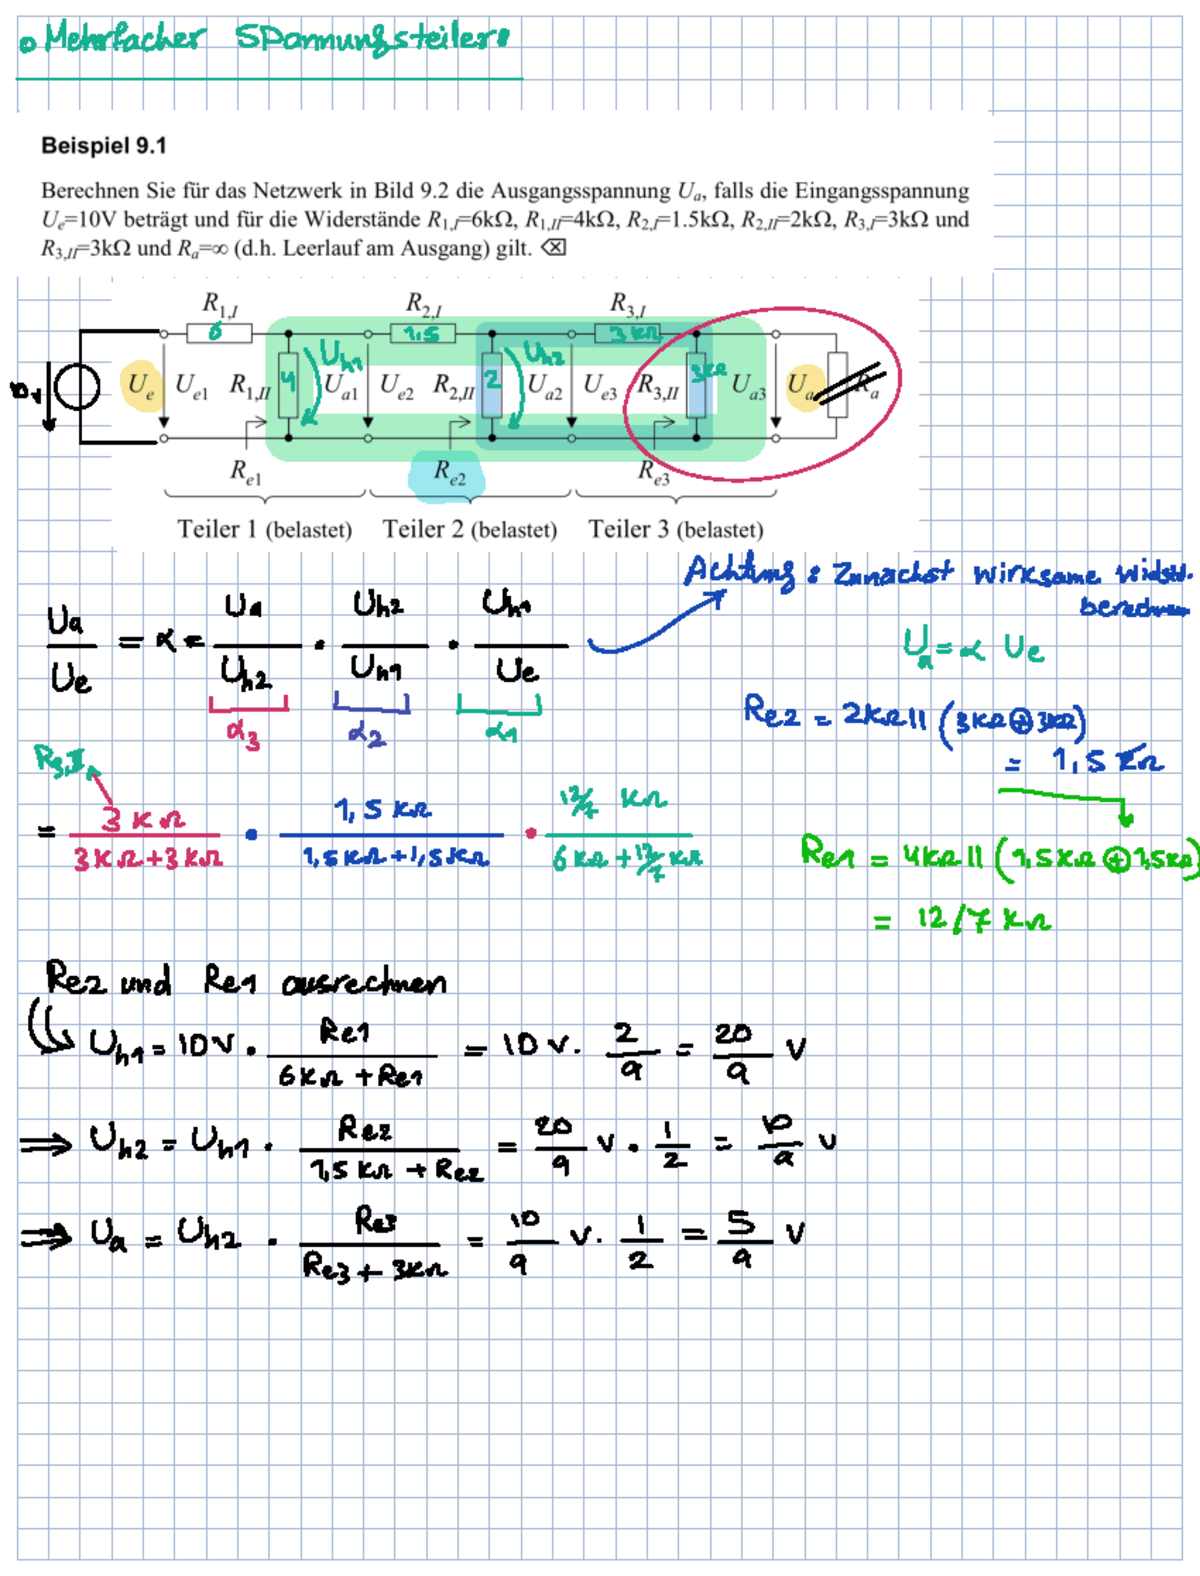 • Mehrfacher Spannungsteiler:
Beispiel 9.1
Berechnen Sie für das Netzwerk in Bild 9.2 die Ausgangsspannung Ua, falls die Eingangsspannung
Ue=10V beträgt und für die Widerstände R1,I=6kΩ, R1,II=4kΩ, R2,I=1.5kΩ, R2,II=2kΩ, R3,I=3kΩ und
R3,II=3kΩ und Ra=∞ (d.h. Leerlauf am Ausgang) gilt. ⌫
R1,I R2,I R3,I
6 1,5 3 kΩ
Uh1 Uh2
Ue Ue1 R1,II 4 Ua1 Ue2 R2,II 2 Ua2 Ue3 R3,II 3kΩ Ua3 Ua Ra
Re1 Re2 Re3
Teiler 1 (belastet) Teiler 2 (belastet) Teiler 3 (belastet)
Achtung: Zunächst wirksame Widst.
berechnen
Ua/Ue = α = Ua/Uh2 · Uh2/Uh1 · Uh1/Ue
α3 α2 α1
Ua = α Ue
Re2 = 2kΩ || (3kΩ ⊕ 3kΩ)
= 1,5 kΩ
R3,II
= 3 kΩ/(3 kΩ + 3 kΩ) · 1,5 kΩ/(1,5 kΩ + 1,5 kΩ) · 12/7 kΩ/(6 kΩ + 12/7 kΩ)
Re1 = 4kΩ || (1,5kΩ ⊕ 1,5kΩ)
= 12/7 kΩ
Re2 und Re1 ausrechnen
Uh1 = 10V · Re1/(6 kΩ + Re1) = 10 V · 2/9 = 20/9 V
⇒ Uh2 = Uh1 · Re2/(1,5 kΩ + Re2) = 20/9 V · 1/2 = 10/9 V
⇒ Ua = Uh2 · Re3/(Re3 + 3kΩ) = 10/9 V · 1/2 = 5/9 V